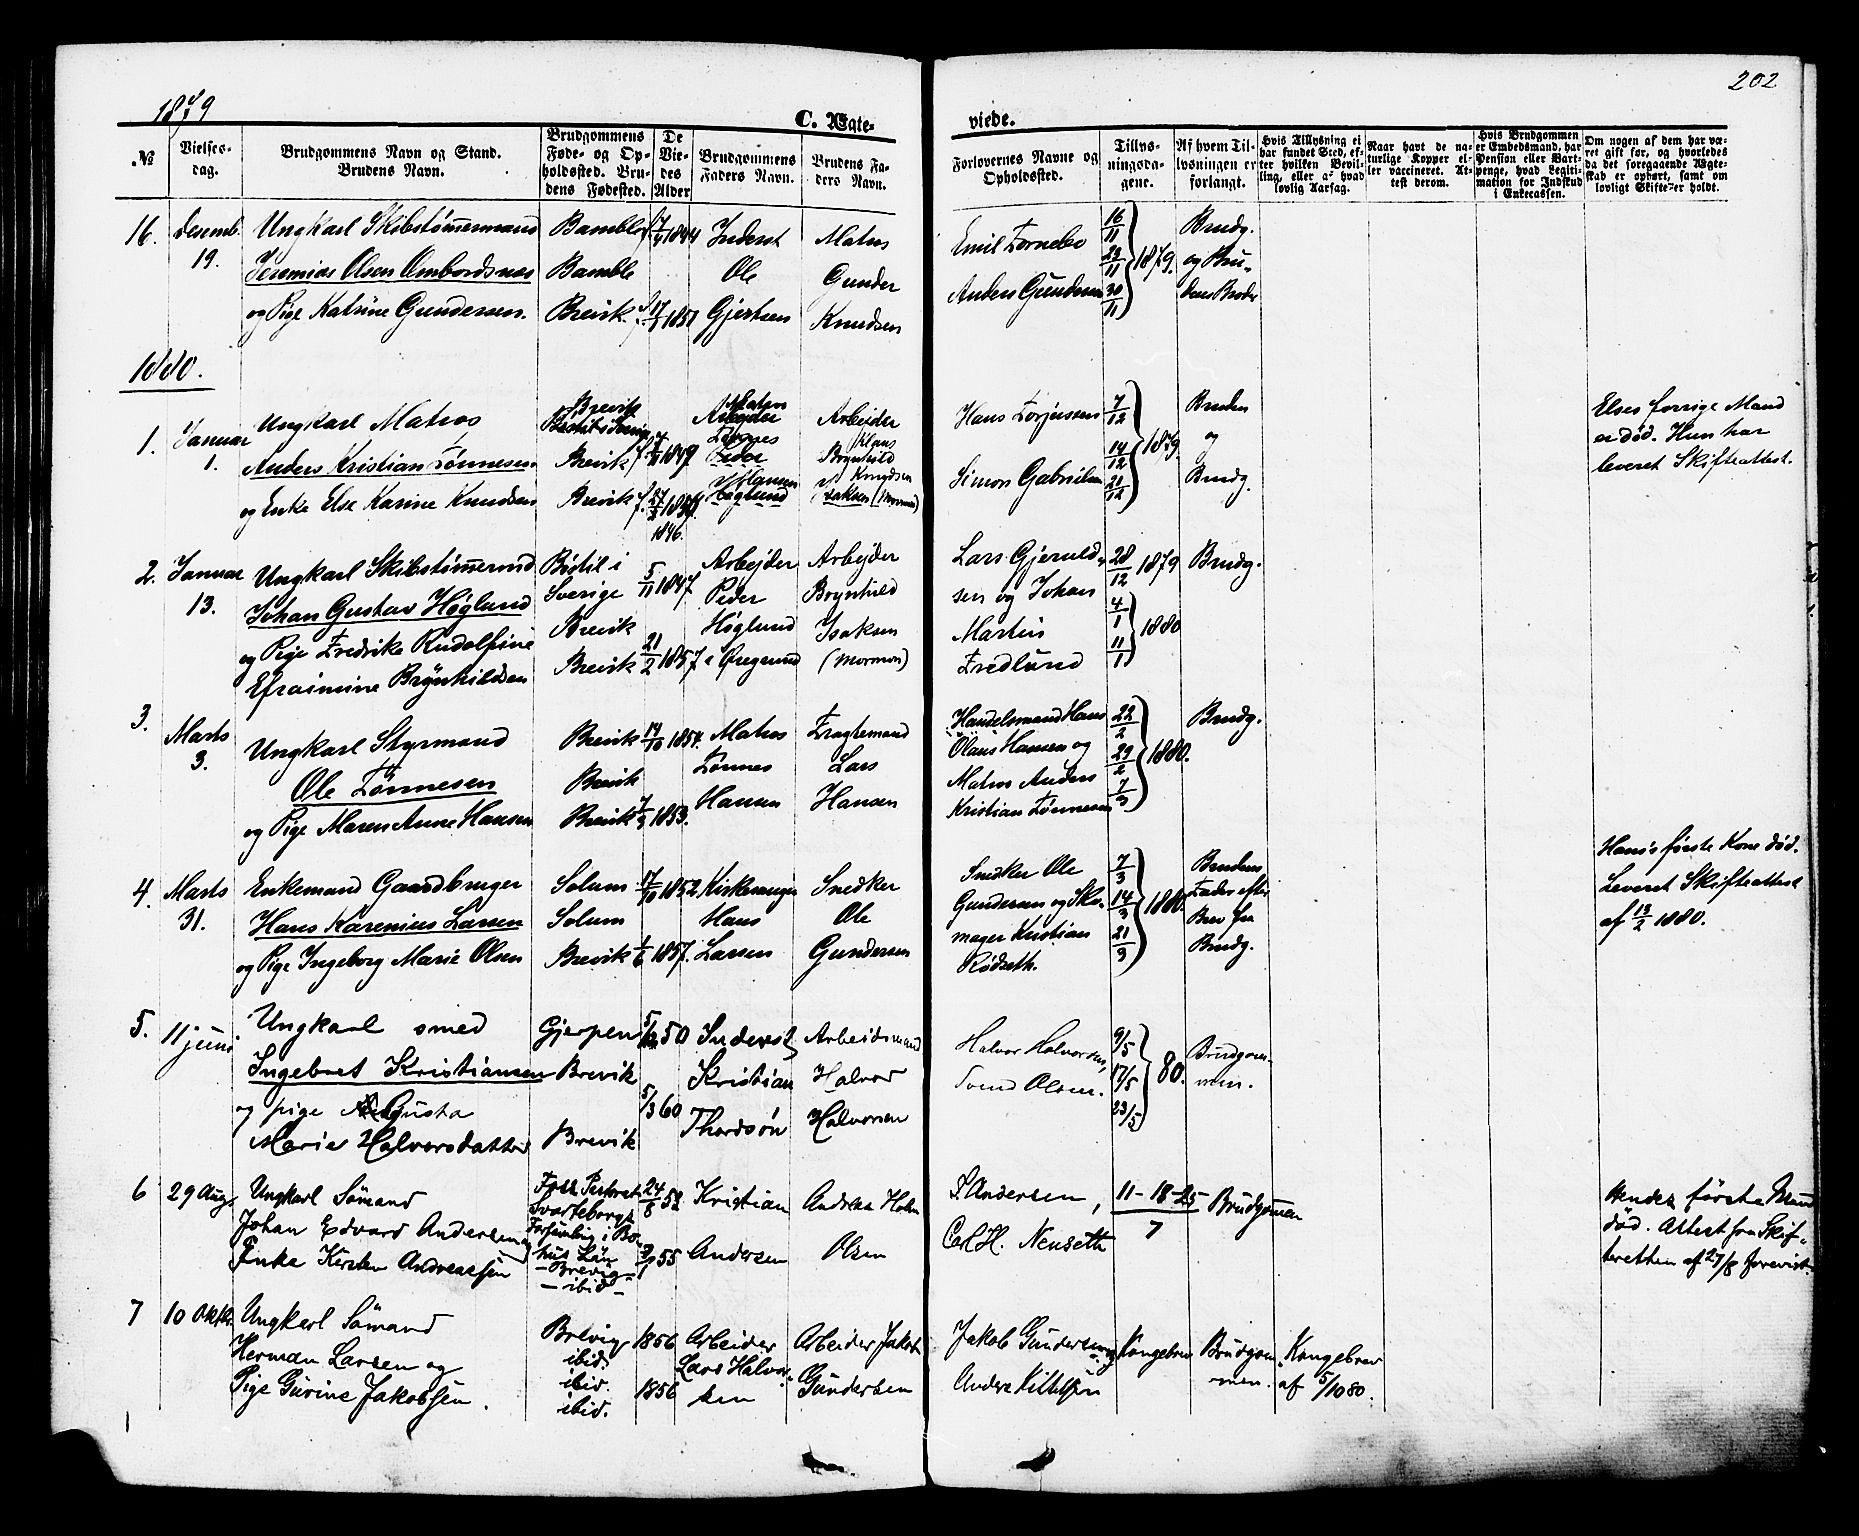 202
1879
C. Ægte-
viede.
No
Vielses-
dag.
Brudgommens Navn og Stand.
Brudens Navn.
Brudgommens
Føde- og Op-
holdssted. Bru-
dens Fødested.
De
Vie-
des
Alder
Brudgommens
Faders Navn.
Brudens Fa-
ders Navn.
Forlovernes Navne og
Opholdssted.
Tillys-
ningsda-
gene.
Af hvem Til-
lysningen er
forlangt.
Hvis Tillysning ei
har fundet Sted, ef-
ter hvilken Bevil-
ling, eller af hvad
lovlig Aarsag.
Naar havt de na-
turlige Kopper el-
ler vaccineret. At-
test derom.
Hvis Brudgommen
er Embedsmand, har
Pension eller Vart-
penge, hvad Legiti-
mation for Indskud
i Enkecassen.
Om nogen af dem har væ-
ret gift før, og hvorledes
da det foregaaende Ægte-
skab er ophørt, samt om
lovligt Skifte er holdt.
16.
Desemb.
19.
Ungkarl Skibstømmermand
Jeremias Olsen Ombordsnæs
og Pige Katrine Gundersen.
Bamble
Bamble
Brevik
1844
1851
Inderst
Ole
Gjertsen
Matros
Gunder
Knudsen
Emil Tornebo
Anders Gundersen
16/11
23/11
30/11
1879.
Brudg.
og Bru-
dens Broder
1880.
1.
Januar
1.
Ungkarl Matros
Anders Kristian Tönnesen
og Enke Else Karine Knudsen
Brevik
Brevik
Brevik
1849
1846.
Matros
Arbejder
Tønnes
Peder
Hansen
Høglund
Arbejder
Klaus
Brynhild
Knudsen
Isaksen (Mormon)
Hans Torjussen
Simon Gabrielsen
7/12
14/12
21/12
1879.
Bruden
og
Brudg.
Elses forrige Mand
er død. Hun har
leveret Skifteattest.
2.
Januar
13.
Ungkarl Skibstømermd
Johan Gustav Höglund
og Pige Fredrike Rudolfine
Efraimine Brynhildsen
Böstil i
Sverige
Brevik
Brevik
5/11 1847
21/2 1857
Arbejder
Peder
Höglund
i Øregrund
Arbejder
Brynhild
Isaksen
(Mormon)
Lars Gjeruld-
sen og Johan
Martin
Fredlund
28/12 1879
4/1
11/1
1880
Brudg.
3.
Marts
3.
Ungkarl Styrmand
Ole Tönnesen
og Pige Maren Anne Hansen
Brevik
Brevik
Brevik
14/10 1854.
7/3 1853.
Matros
Tønnes
Hansen
Fragtemand
Lars
Hansen
Handelsmand Hans
Olaus Hansen og
Matros Anders
Kristian Tönnesen
22/2
29/2
7/3
1880.
Brudg.
4.
Marts
31.
Enkemand Gaardbruger
Hans Karenius Larsen
og Pige Ingeborg Marie Olsen
Solum
Solum
Brevik
17/10 1852
1/6 1857.
Kirkesanger
Hans
Larsen
Snedker
Ole
Gundersen
Snedker Ole
Gundersen og Sko-
mager Kristian
Rödseth.
7/3
14/3
21/3
1880.
Brudens
Fader efter
Brev fra
Brudg.
Hans's første Kone død.
Leveret Skifteattest
af 13/2 1880.
5.
11 juni
Ungkarl smed
Ingebret Kristiansen
og pige Augusta
Marie Halvorsdatter
Gjerpen
Brevik
Brevik
50
5/3 60
Inderst
Kristian
Thordsøn
Arbeidsmand
Halvor
Halvorsen
Halvor Halvorsen,
Olsen.
9/5
17/5
23/5
80.
Brudgom-
men.
6
29 Aug.
Ungkarl Sömand
Johan Edvard Andersen og
Enke Kirsten Andreassen
Foss Pastorat
Svarteborgs
Forsamling i Bo-
hus Län
– Brevig –
– ibid –
24/8 52
55
Kristian
Andersen
Andreas Holm
Olsen
S. Andersen,
Carl H. Neuseth
11 – 18 – 25
7
Brudgomen
Hendes første Mand
død. Attest fra Skif-
teretten af 27/8 forevist.
7
10 Oktbr.
Ungkarl Sömand
Herman Larsen og
Pige Gurine Jakobsen.
Brevig
ibid.
ibid.
ibid.
1856
1856
Arbeider
Lars Halvor-
sen
Arbeider Jakob
Gundersen
Jakob Gundersen og
Anders Kittelsen
Kongebrev
Brudgom-
men.
Kongebrev
af 5/10 80.